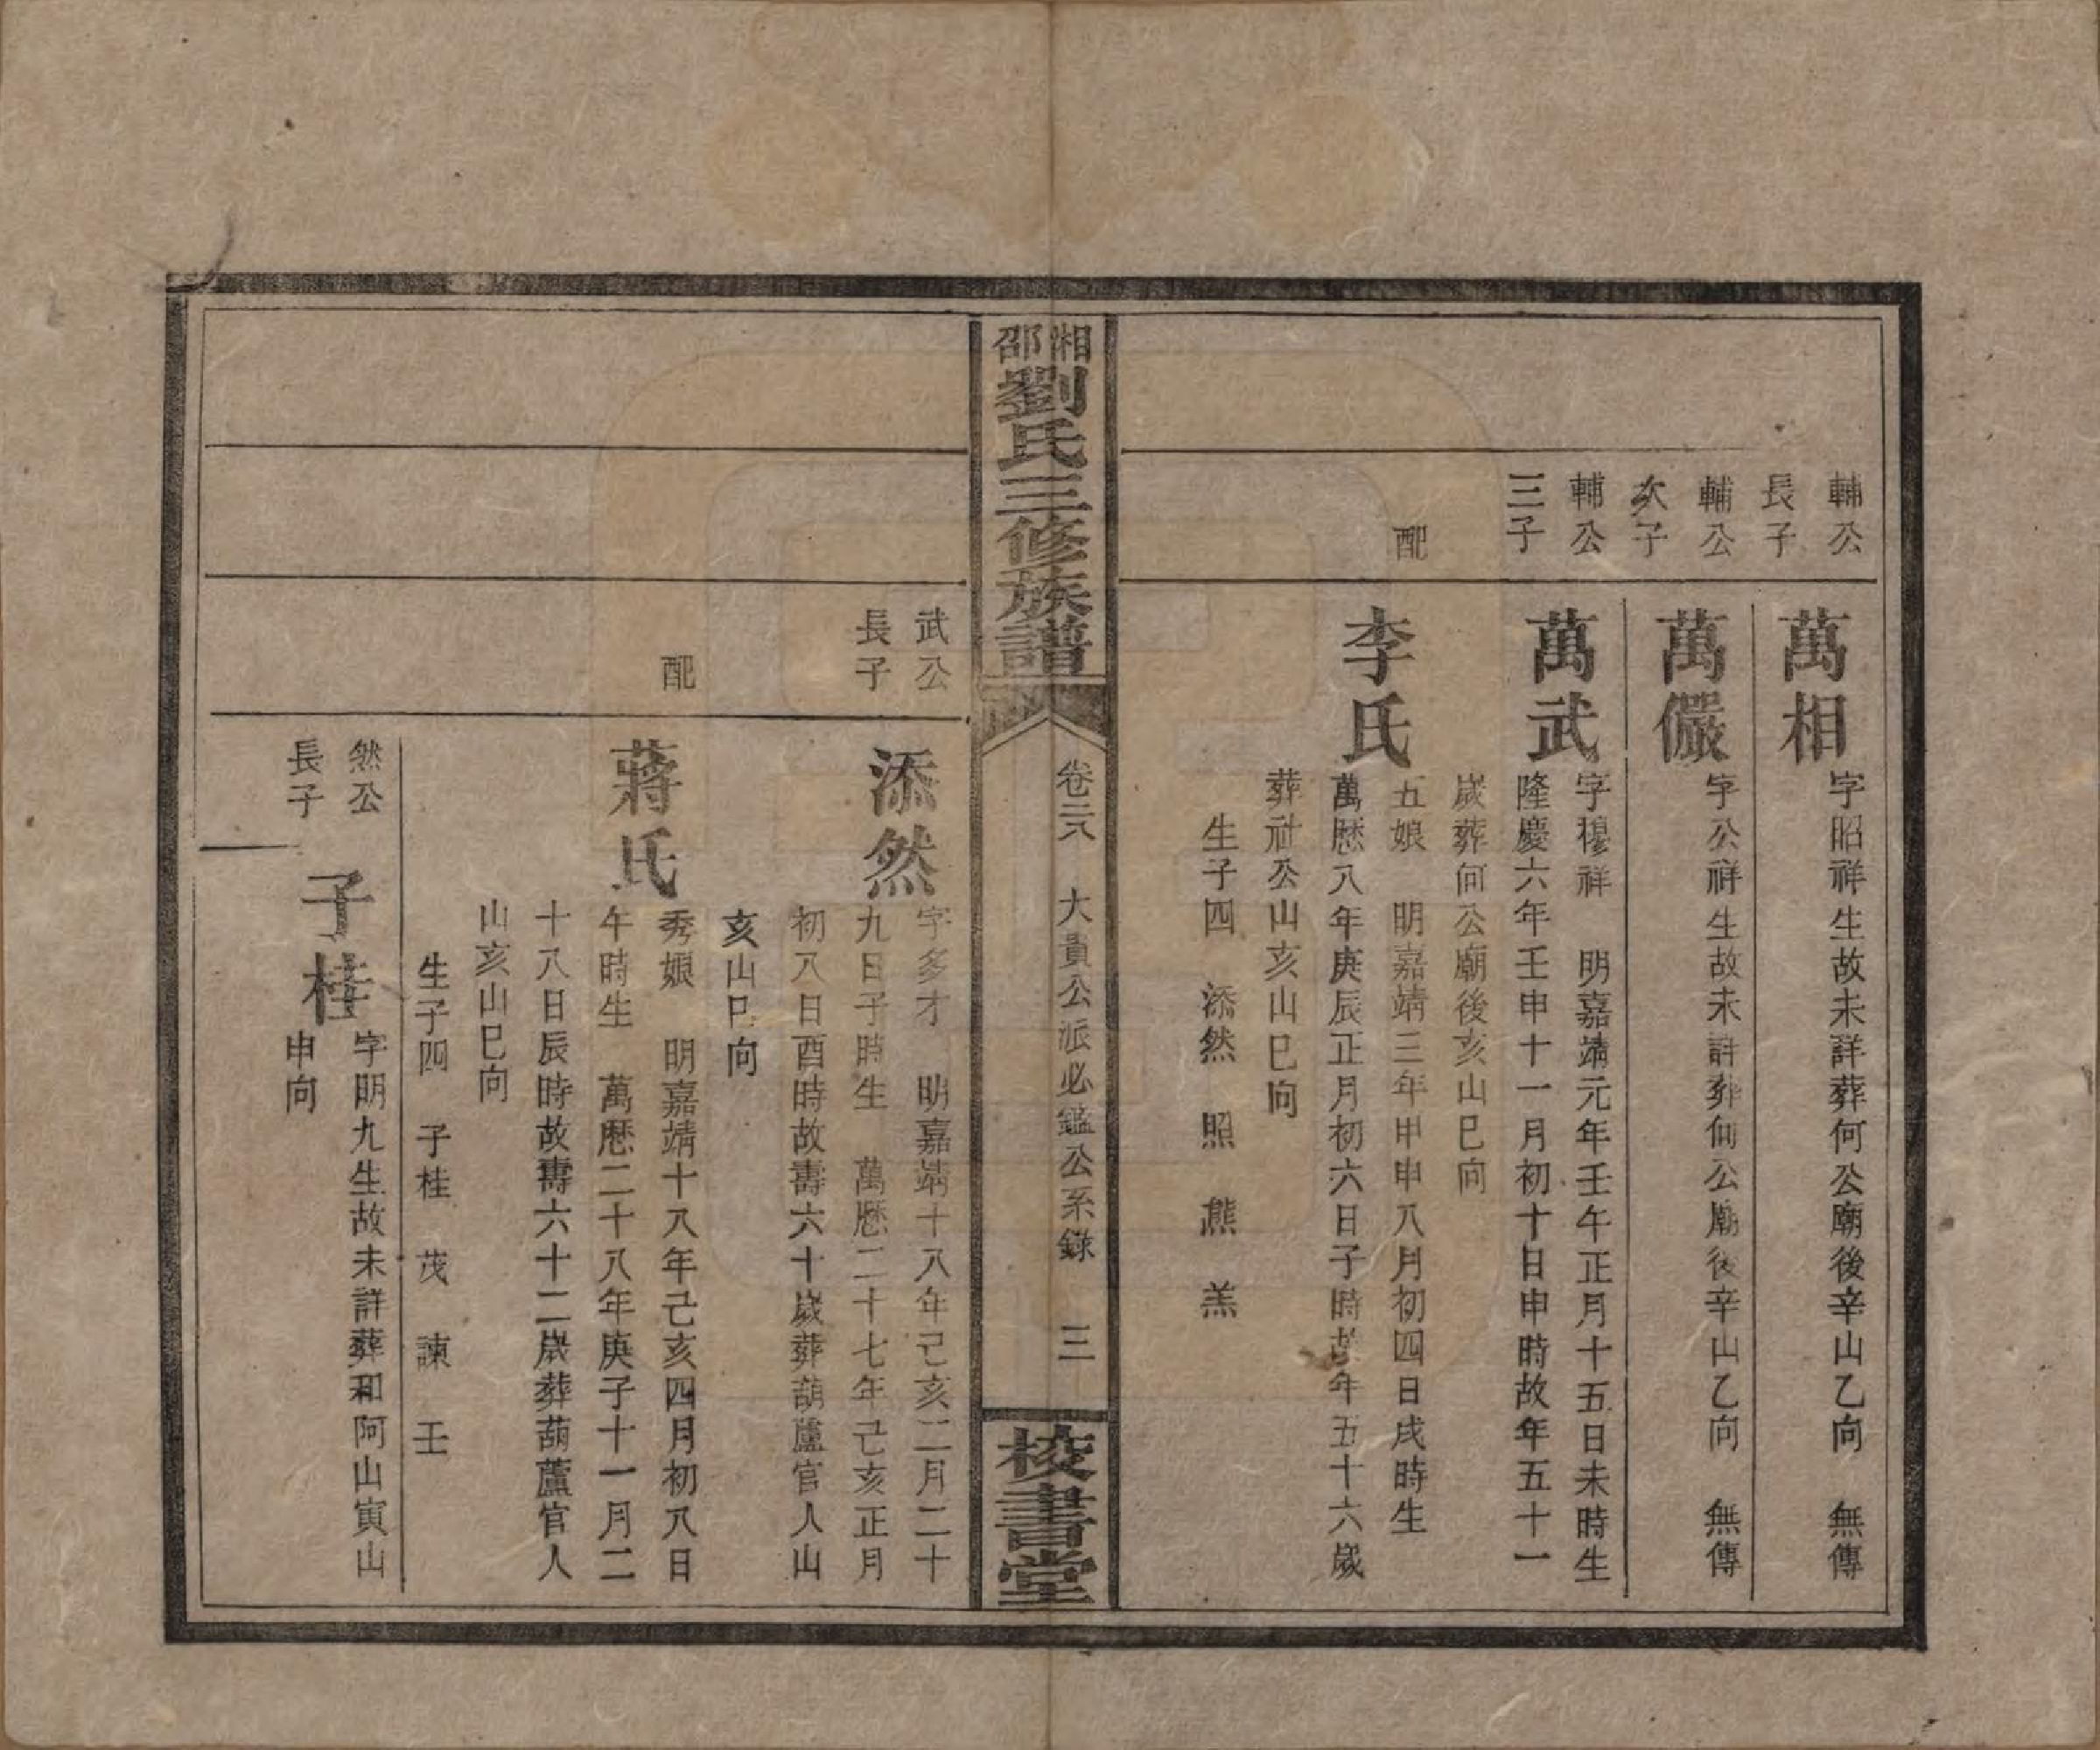 輔公
長子
萬相
字昭祥生故未詳葬何公廟後辛山乙向　無傳
輔公
次子
萬儼
字公祥生故未詳葬何公廟後辛山乙向　無傳
輔公
三子
萬武
字穆祥　明嘉靖元年壬午正月十五日未時生
隆慶六年壬申十一月初十日申時故年五十一
歲葬何公廟後亥山巳向
配
李氏
五娘　明嘉靖三年甲申八月初四日戌時生
萬厯八年庚辰正月初六日子時故年五十六歲
葬社公山亥山巳向
生子四　添然　照　熊　羔
湘邵劉氏三修族譜
卷二八　大貴公派必鑑公系錄　三
校書堂
武公
長子
添然
字多才　明嘉靖十八年己亥二月二十
九日子時生　萬厯二十七年己亥正月
初八日酉時故壽六十歲葬葫蘆官人山
亥山巳向
配
蔣氏
秀娘　明嘉靖十八年己亥四月初八日
午時生　萬厯二十八年庚子十一月二
十八日辰時故壽六十二歲葬葫蘆官人
山亥山巳向
生子四　子桂　茂　諫　壬
然公
長子
子桂
字明九生故未詳葬和阿山寅山
申向